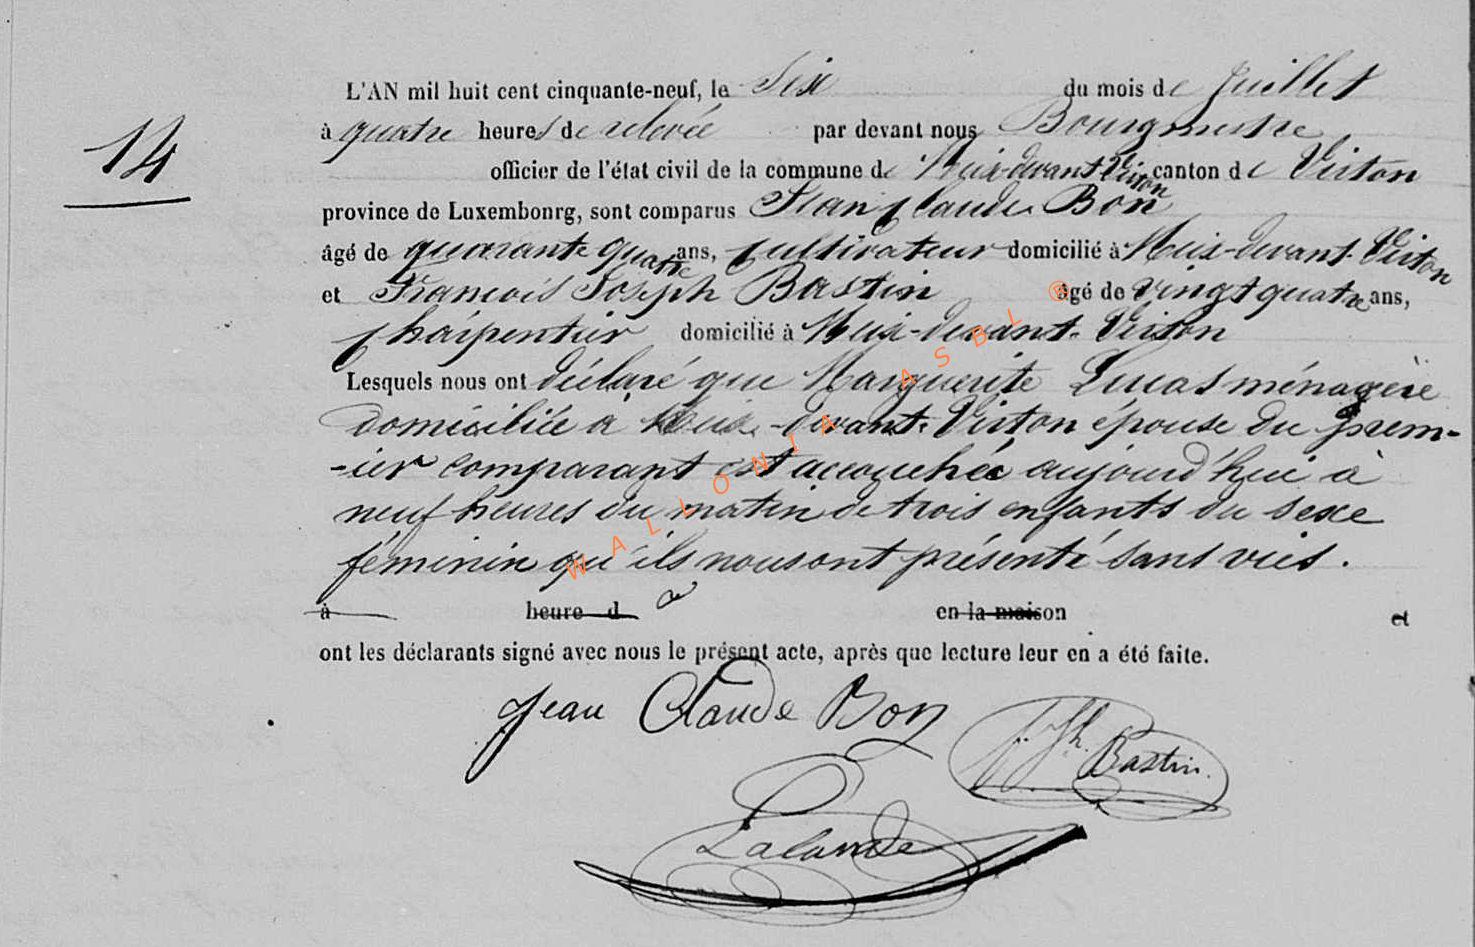 L'AN mil huit cent cinquante-neuf, le Six du mois de Juillet
14
à quatre heures de relevée par devant nous Bourgmestre
officier de l'état civil de la commune de Meix-devant-Virton canton de Virton
province de Luxembourg, sont comparus Jean Claude Bon
âgé de quarante quatre ans, cultivateur domicilié à Meix-devant-Virton
et François Joseph Bastin âgé de vingt quatre ans,
charpentier domicilié à Meix-devant-Virton
Lesquels nous ont déclaré que Marguerite Lucas ménagère
domiciliée à Meix-devant-Virton épouse du prem-
-ier comparant est accouchée aujourd'hui à
neuf heures du matin de trois enfants du sexe
féminin qu'ils nous ont présenté sans vies.
à heure d en la maison et
ont les déclarants signé avec nous le présent acte, après que lecture leur en a été faite.
Jean Claude Bon
J. Jh. Bastin.
Lalande
WALLONIA ASBL ®